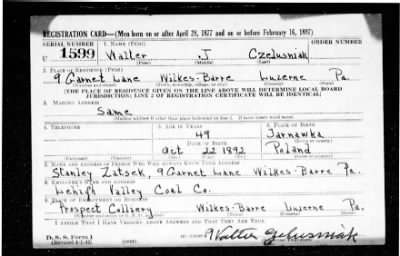 REGISTRATION CARD—(Men born on or after April 28, 1877 and on or before February 16, 1897)
SERIAL NUMBER 1. NAME (Print) ORDER NUMBER
U 1599 Walter J Czelusniak
(First) (Middle) (Last)
2. PLACE OF RESIDENCE (Print)
9 Garnet Lane Wilkes-Barre Luzerne Pa.
(Number and street) (Town, township, village, or city) (County) (State)
[THE PLACE OF RESIDENCE GIVEN ON THE LINE ABOVE WILL DETERMINE LOCAL BOARD
JURISDICTION; LINE 2 OF REGISTRATION CERTIFICATE WILL BE IDENTICAL]
3. MAILING ADDRESS
Same
[Mailing address if other than place indicated on line 2. If same insert word same]
4. TELEPHONE 5. AGE IN YEARS 6. PLACE OF BIRTH
49 Jarnawka
DATE OF BIRTH (Town or county)
Oct 22 1892 Poland
(Exchange) (Number) (Mo.) (Day) (Yr.) (State or country)
7. NAME AND ADDRESS OF PERSON WHO WILL ALWAYS KNOW YOUR ADDRESS
Stanley Zatsek, 9 Garnet Lane Wilkes-Barre Pa.
8. EMPLOYER'S NAME AND ADDRESS
Lehigh Valley Coal Co.
9. PLACE OF EMPLOYMENT OR BUSINESS
Prospect Colliery Wilkes-Barre Luzerne Pa.
(Number and street or R. F. D. number) (Town) (County) (State)
I AFFIRM THAT I HAVE VERIFIED ABOVE ANSWERS AND THAT THEY ARE TRUE.
D. S. S. Form 1
(Revised 4-1-42)
Walter Czelusniak